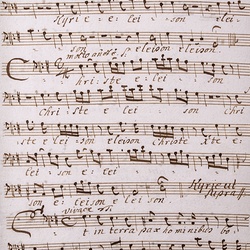 Kyrie e lei son elei
son eleison eleison.
Chri ste e lei son
Chri ste e lei son Chri
ste e lei son eleison Christe Xte e
lei son e lei son elei son. Kyrie ut supra
vivace
et in terra pax hominibus bo